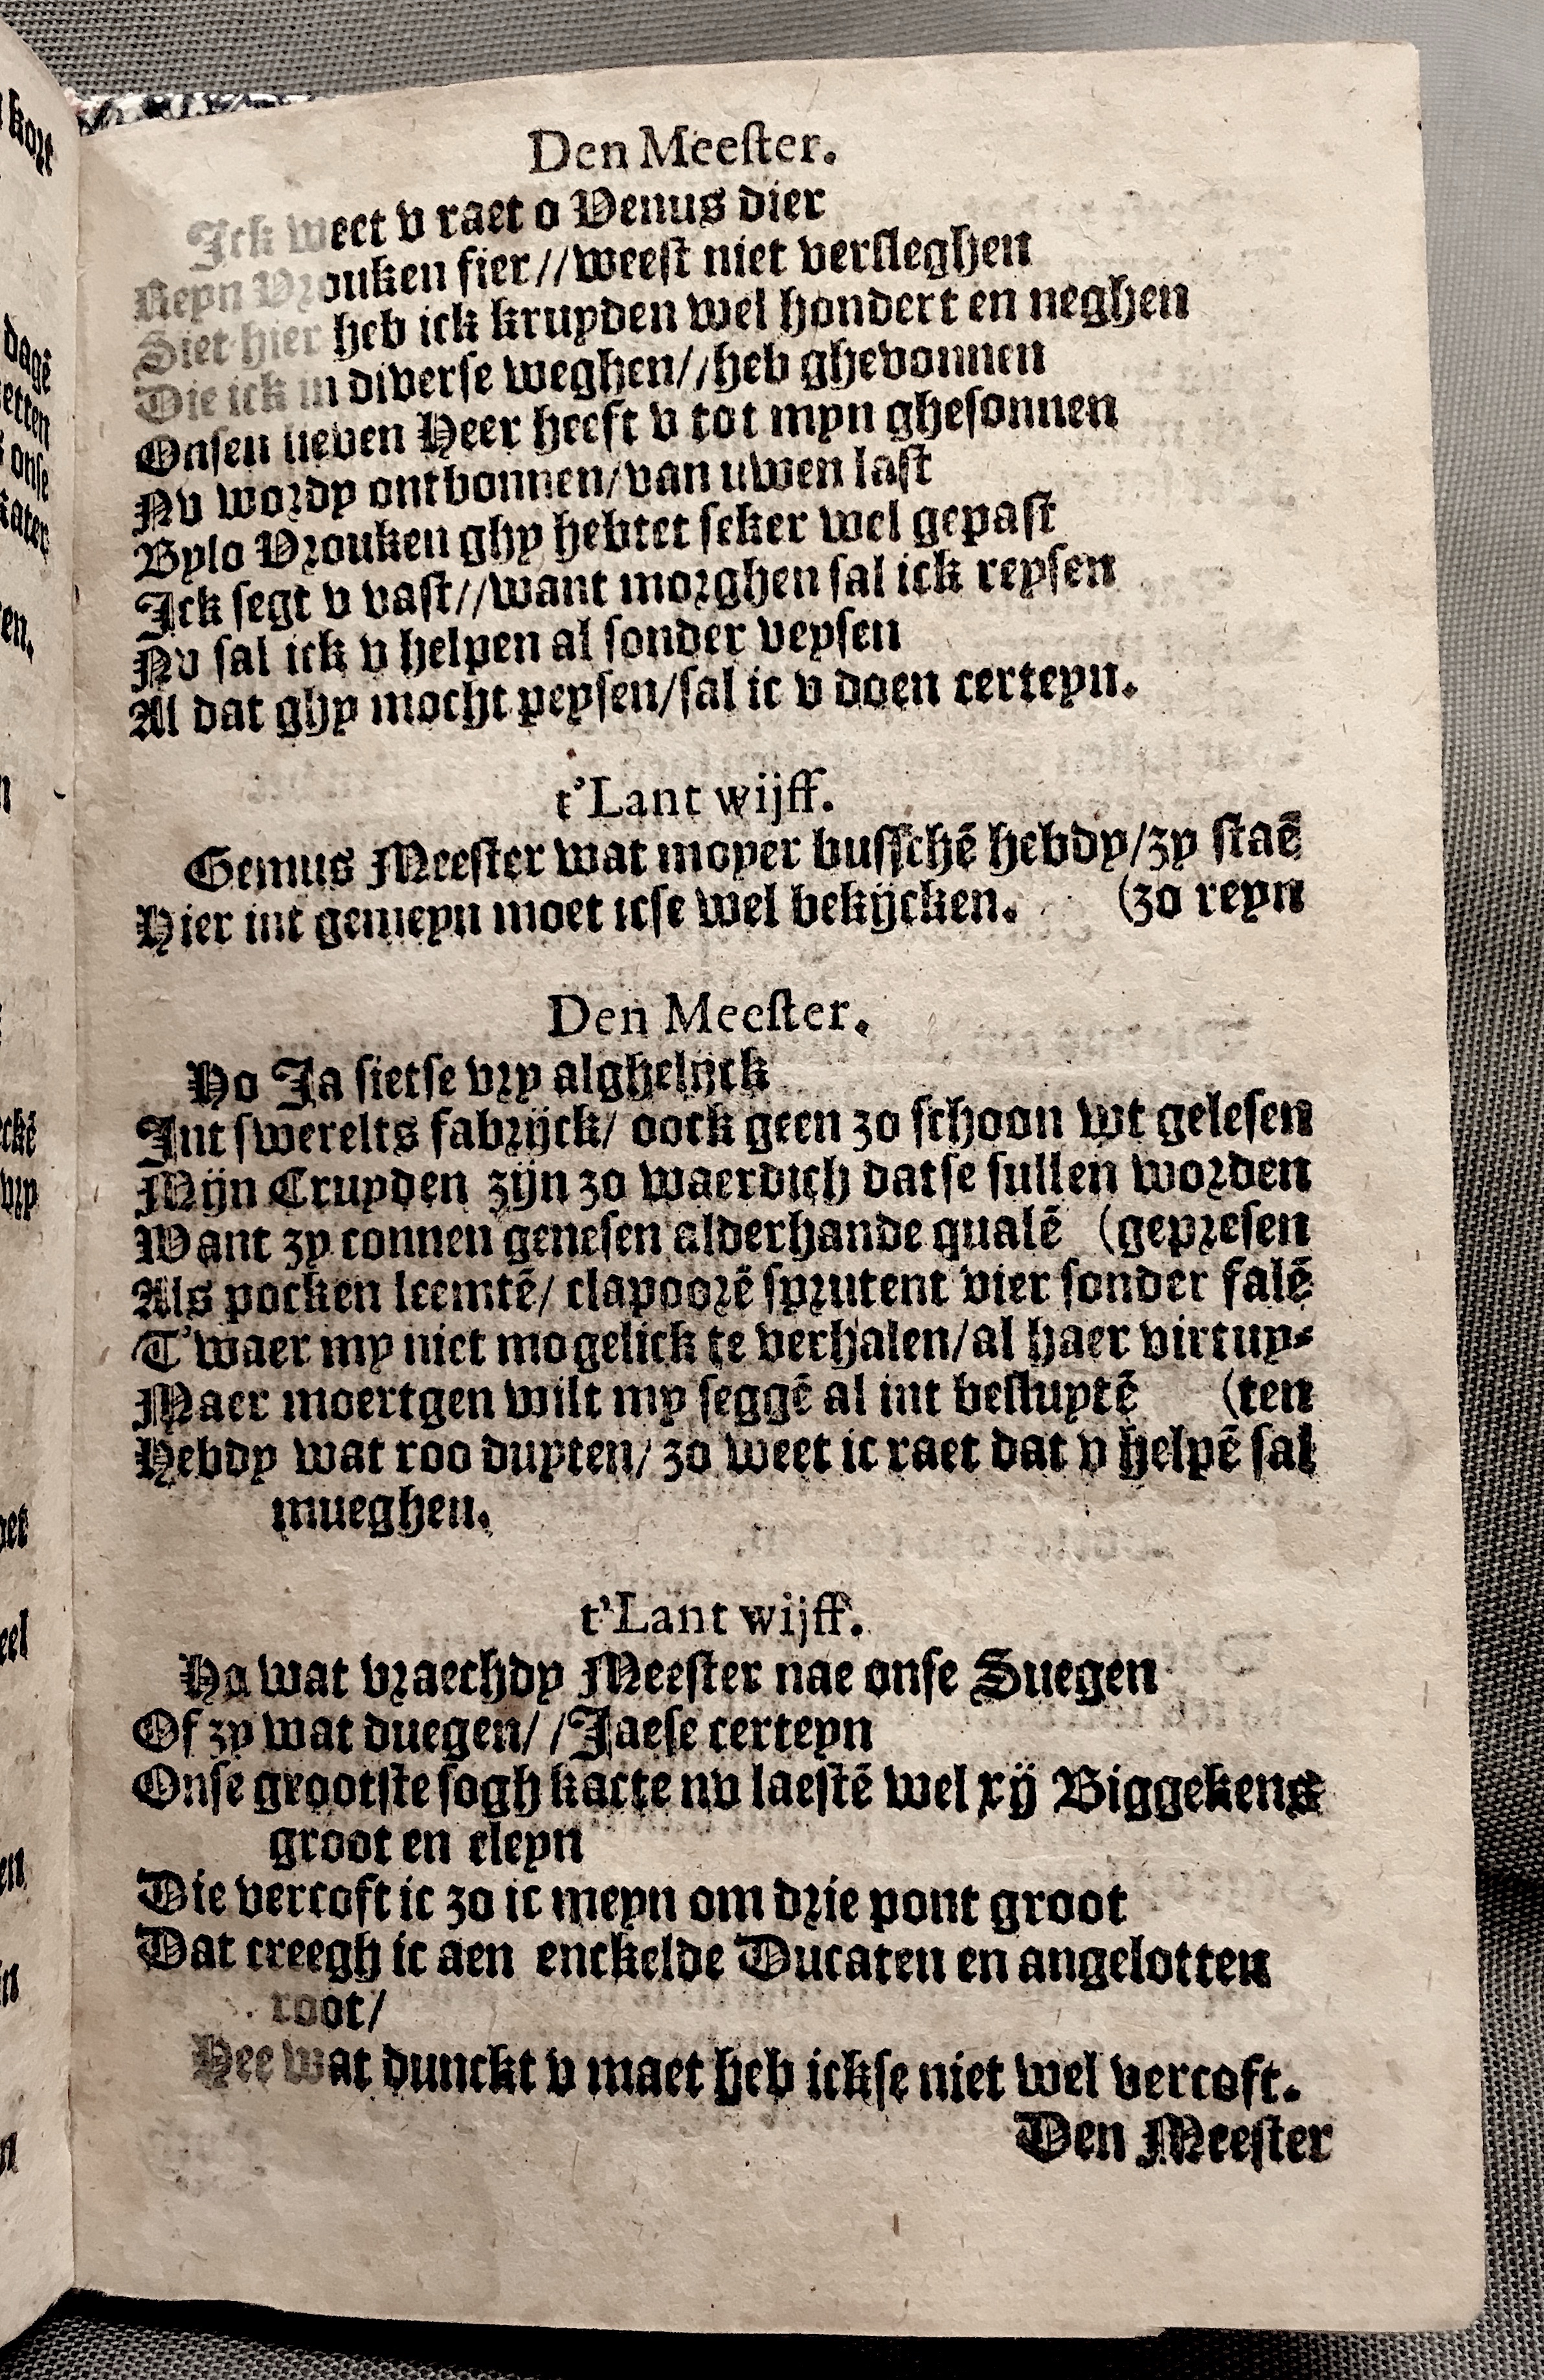 Den Meester.
Ick weet v raet o Venus dier
Reyn Vrouken fier//weest niet versleghen
Siet hier heb ick kruyden wel hondert en neghen
Die ick in diverse weghen//heb ghevonnen
Onsen lieven Heer heeft v tot myn ghesonnen
Nv wordy ontbonnen/van uwen last
Bylo Vrouken ghy hebtet seker wel gepast
Ick segt v vast//want morghen sal ick reysen
Nv sal ick v helpen al sonder veysen
Al dat ghy mocht peysen/sal ic v doen certeyn.
t'Lant wijff.
Gemus Meester wat moyer busschē hebdy/zy staē
Hier int gemeyn moet icse wel bekijcken. (zo reyn
Den Meester.
Ho Ja sietse vry alghelijck
Int swerelts fabrijck/ oock geen zo schoon wt gelesen
Mijn Cruyden zijn zo waerdich datse sullen worden
Want zy connen genesen alderhande qualē (gepresen
Als pocken leemtē/ clapoorē sprutent vier sonder falē
T'waer my niet mogelick te verhalen/al haer virtuy-
Maer moertgen wilt my seggē al int besluytē (ten
Hebdy wat roo duyten/ zo weet ic raet dat v helpē sal
mueghen.
t'Lant wijff.
Ha wat vraechdy Meester nae onse Suegen
Of zy wat duegen//Jaese certeyn
Onse grootste sogh kacte nv laestē wel xij Biggekens
groot en cleyn
Die vercoft ic zo ic meyn om drie pont groot
Dat creegh ic aen enckelde Ducaten en angelotten
root/
Hee wat dunckt v maet heb ickse niet wel vercoft.
Den Meester